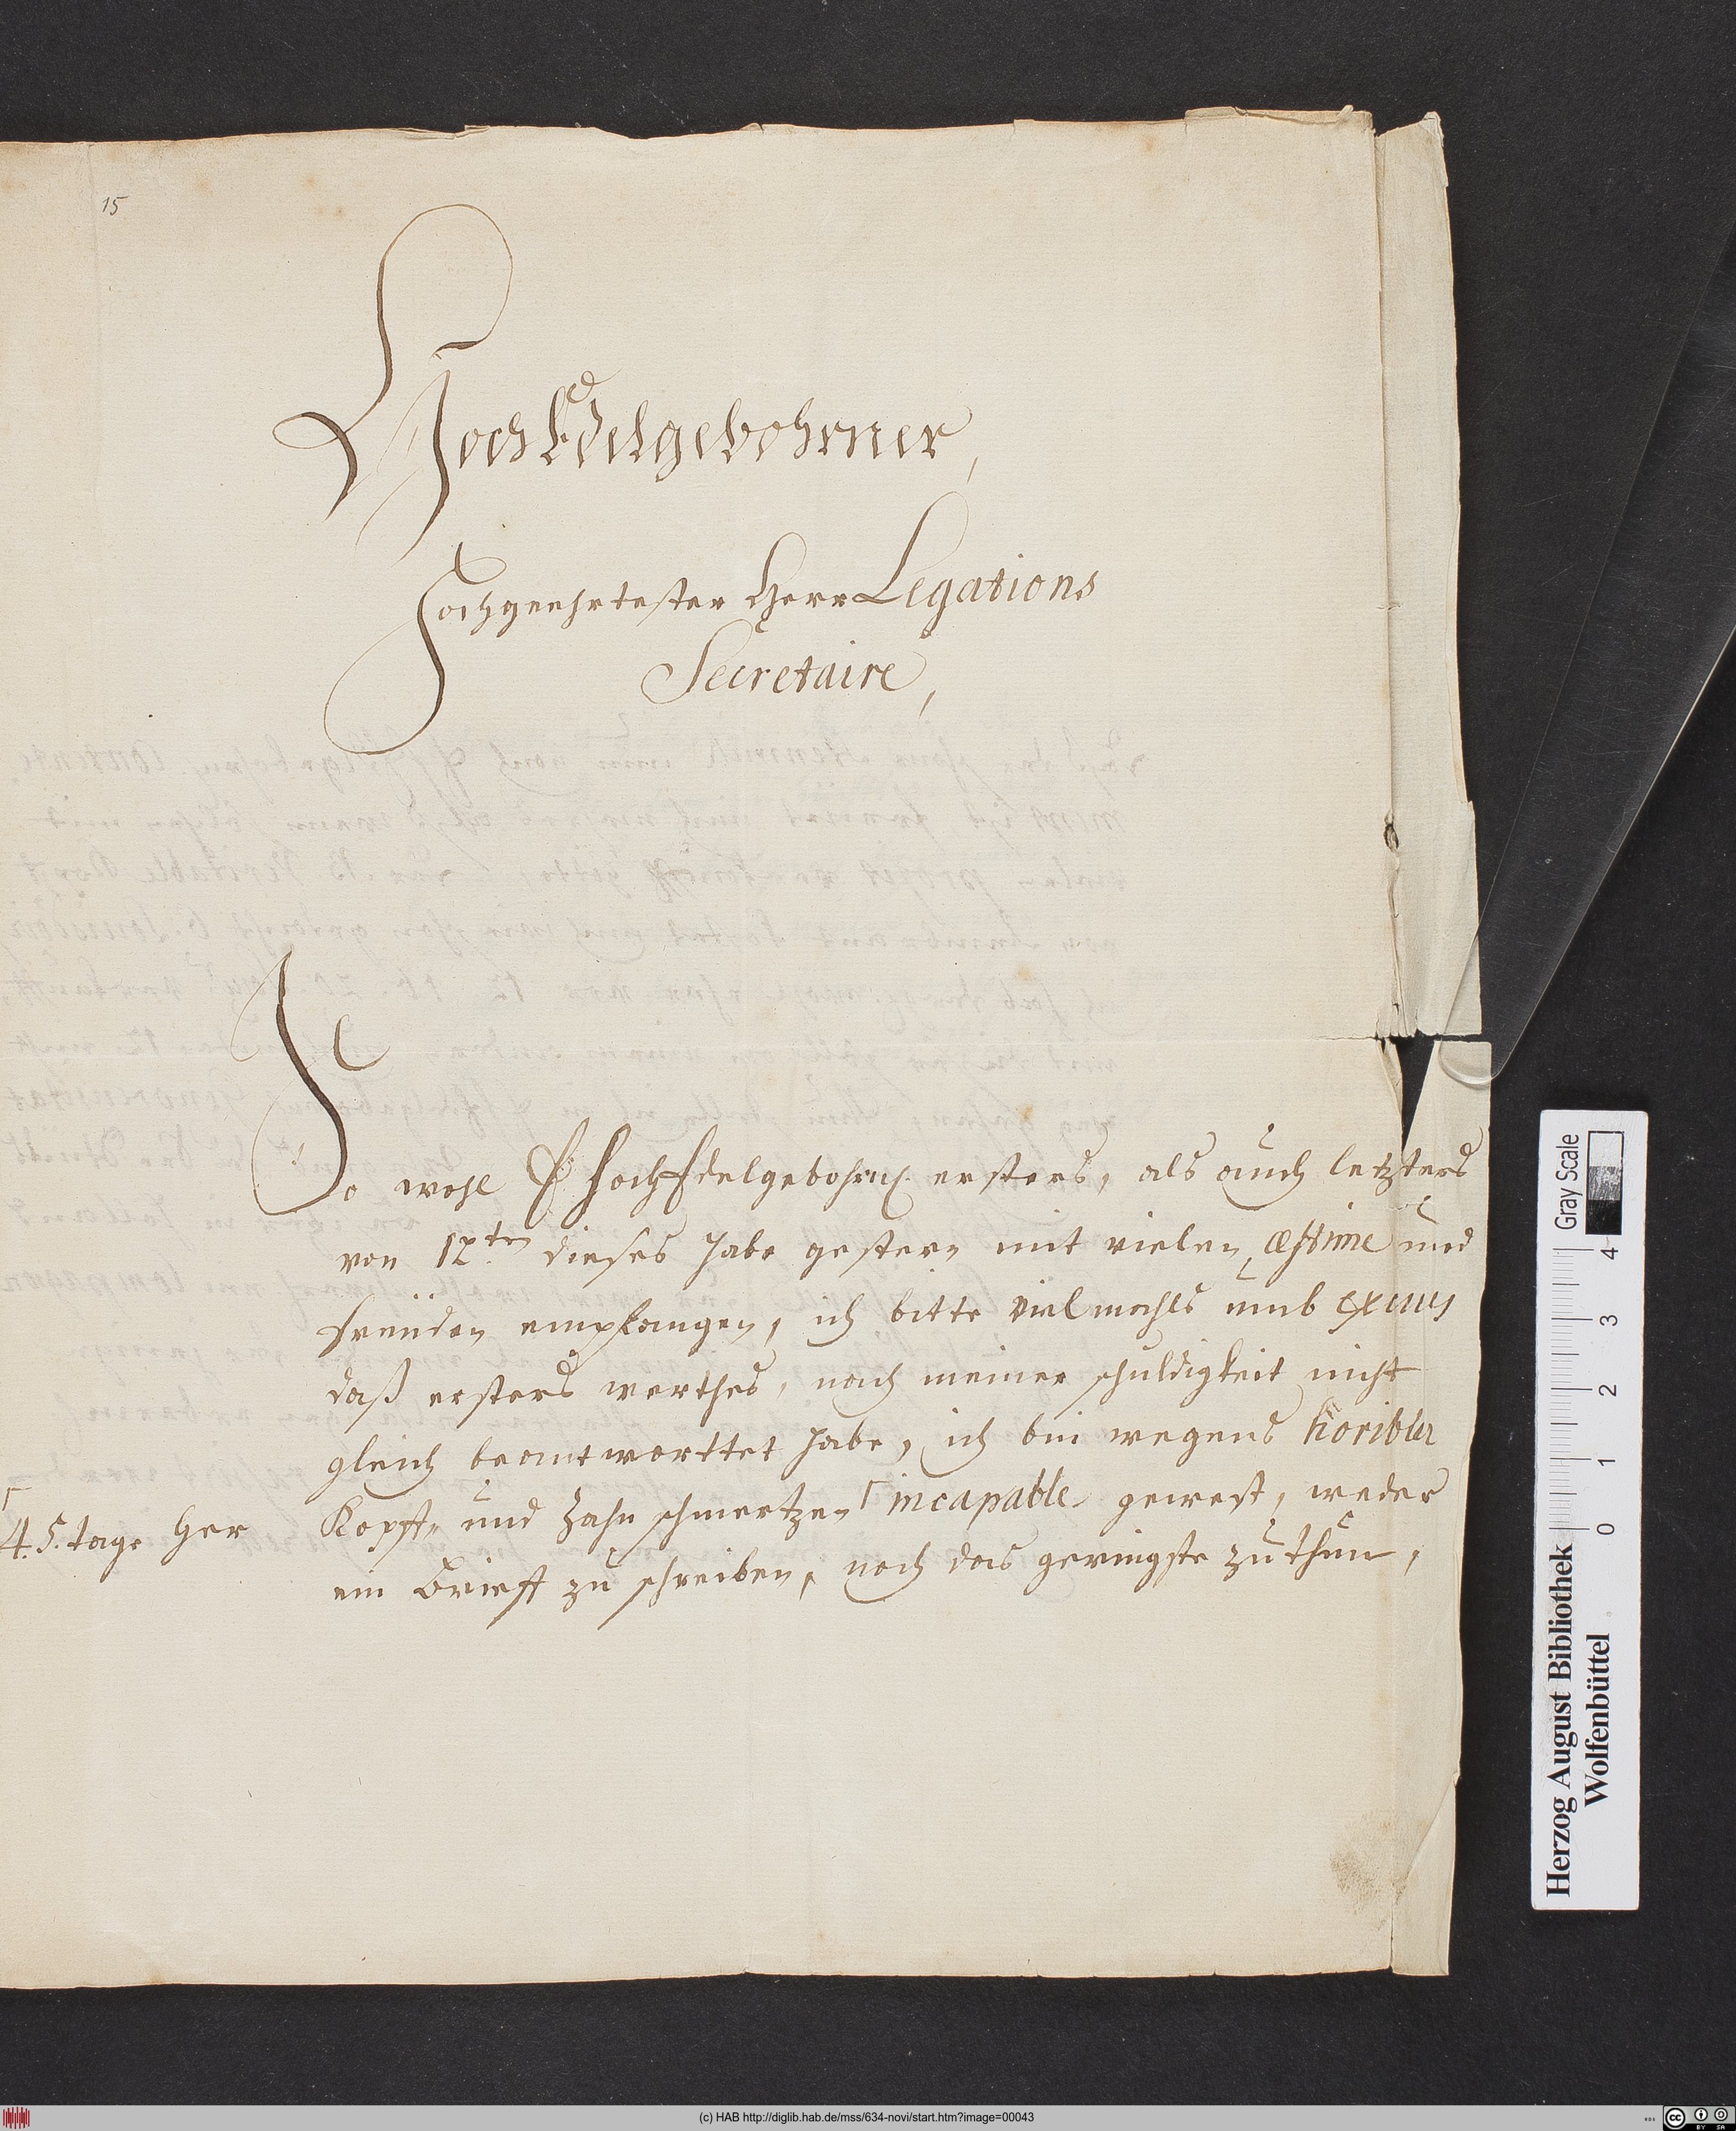 15
HochEdelgebohrner,
Hochgeehrtester Herr Legations
Secretaire,
So wohl E HochEdelgebohrn. ersters, als auch letzters
von 12.ten dieses habe gestern mit vielen æstime und
freuden empfangen, ich bitte vielmahls umb excus
daß ersters werthes, nach meiner schuldigkeit nicht
gleich beantworttet habe, ich bin wegens horibler
Kopff- und Zahn schmertzen ⌈ incapable gewest, weder
⌈ 4. 5. tage her
ein Brieff zu schreiben, noch das geringste zu thun,
Herzog August Bibliothek
Wolfenbüttel
Gray Scale
0 1 2 3 4
(c) HAB http://diglib.hab.de/mss/634-novi/start.htm?image=00043